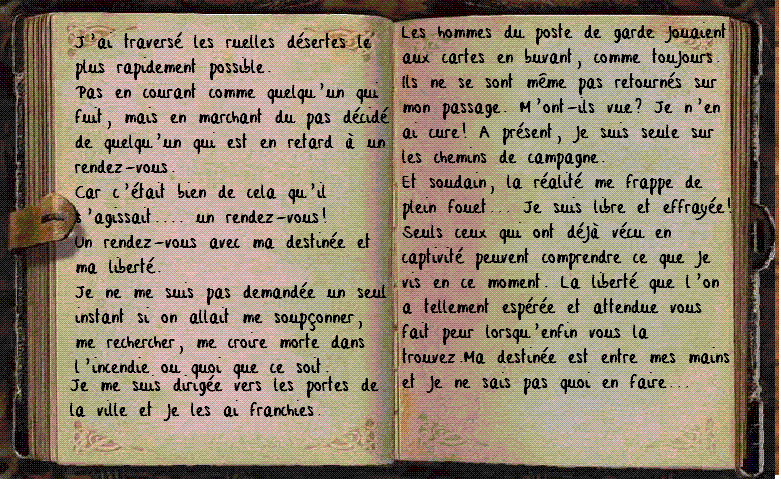 J'ai traversé les ruelles désertes le
plus rapidement possible.
Pas en courant comme quelqu'un qui
fuit, mais en marchant du pas décidé
de quelqu'un qui est en retard à un
rendez-vous.
Car c'était bien de cela qu'il
s'agissait.... un rendez-vous!
Un rendez-vous avec ma destinée et
ma liberté.
Je ne me suis pas demandée un seul
instant si on allait me soupçonner,
me rechercher, me croire morte dans
l'incendie ou quoi que ce soit.
Je me suis dirigée vers les portes de
la ville et je les ai franchies.
Les hommes du poste de garde jouaient
aux cartes en buvant, comme toujours.
Ils ne se sont même pas retournés sur
mon passage. M'ont-ils vue? Je n'en
ai cure! A présent, je suis seule sur
les chemins de campagne.
Et soudain, la réalité me frappe de
plein fouet... Je suis libre et effrayée!
Seuls ceux qui ont déjà vécu en
captivité peuvent comprendre ce que je
vis en ce moment. La liberté que l'on
a tellement espérée et attendue vous
fait peur lorsqu'enfin vous la
trouvez.Ma destinée est entre mes mains
et je ne sais pas quoi en faire...